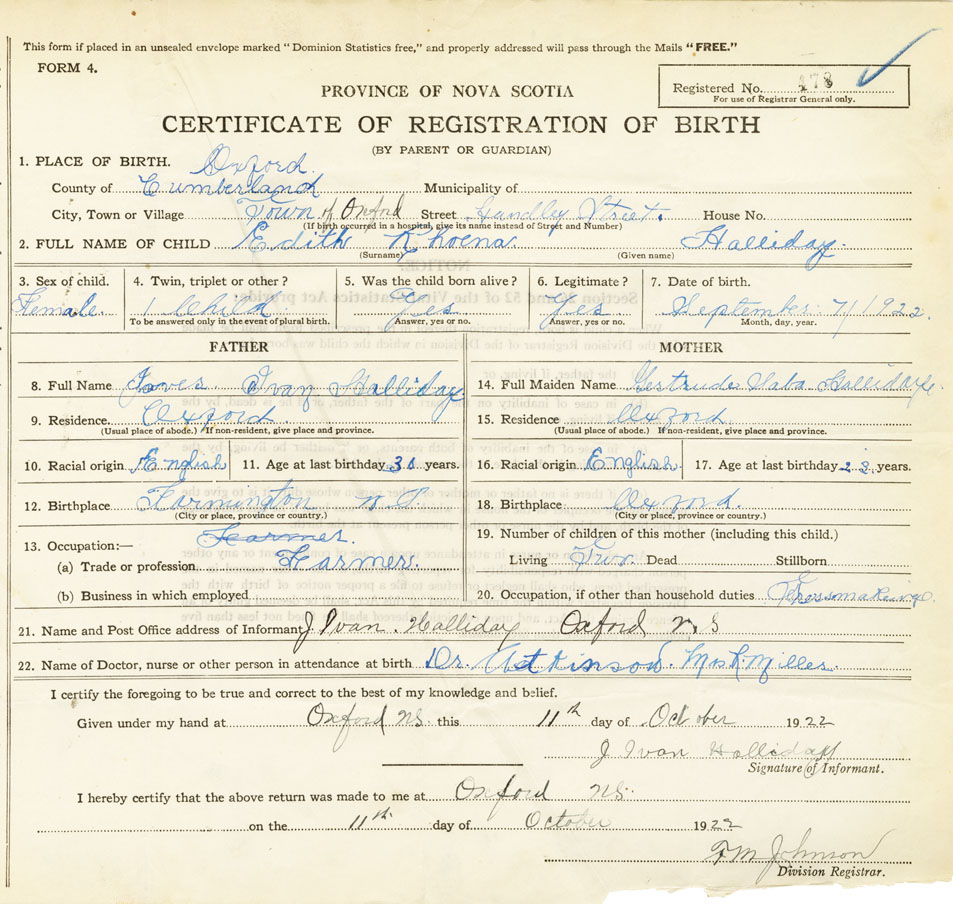 This form if placed in an unsealed envelope marked "Dominion Statistics free," and properly addressed will pass through the Mails "FREE."
FORM 4.
Registered No. 478
For use of Registrar General only.
PROVINCE OF NOVA SCOTIA
CERTIFICATE OF REGISTRATION OF BIRTH
(BY PARENT OR GUARDIAN)
1. PLACE OF BIRTH. Oxford.
County of Cumberland Municipality of
City, Town or Village Town of Oxford Street Handley Street. House No.
(If birth occurred in a hospital, give its name instead of Street and Number)
2. FULL NAME OF CHILD Edith Rhoena Halliday.
(Surname) (Given name)
3. Sex of child. 4. Twin, triplet or other? 5. Was the child born alive? 6. Legitimate? 7. Date of birth.
Female. 1 Child Yes Yes September 7/1922.
To be answered only in the event of plural birth. Answer, yes or no. Answer, yes or no. Month, day, year.
FATHER MOTHER
8. Full Name Ivan Halliday 14. Full Maiden Name Gertrude Hallidaye
9. Residence Oxford. 15. Residence Oxford.
(Usual place of abode.) If non-resident, give place and province. (Usual place of abode.) If non-resident, give place and province.
10. Racial origin English 11. Age at last birthday 30 years. 16. Racial origin English. 17. Age at last birthday 23 years.
12. Birthplace Farmington 18. Birthplace Oxford.
(City or place, province or country.) (City or place, province or country.)
Farmer.
13. Occupation:— 19. Number of children of this mother (including this child.)
(a) Trade or profession Farmer. Living Two Dead Stillborn
(b) Business in which employed 20. Occupation, if other than household duties Dressmakeing.
21. Name and Post Office address of Informant J. Ivan Halliday Oxford N.S
22. Name of Doctor, nurse or other person in attendance at birth Dr. Atkinson. Mrs R. Miller.
I certify the foregoing to be true and correct to the best of my knowledge and belief.
Given under my hand at Oxford NS. this 11th day of October 1922
J Ivan Halliday
Signature of Informant.
I hereby certify that the above return was made to me at Oxford NS.
on the 11th day of October 1922
F M Johnson
Division Registrar.